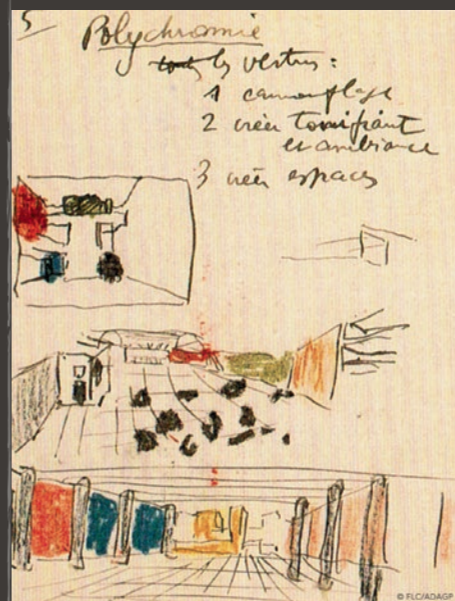 5
Polychromie
tous les vertus :
1 camouflage
2 créer tonifiant
et ambiance
3 créer espaces
© FLC/ADAGP